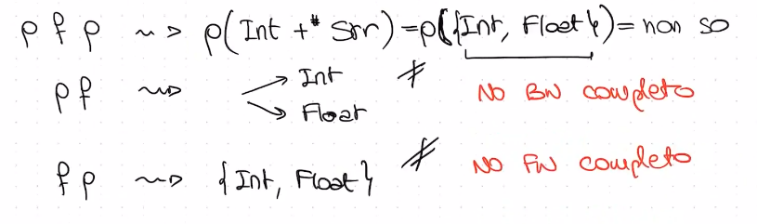 ρ f ρ ~> ρ(Int +# Str) = ρ({Int, Float}) = non so
ρ f ~> Int ≠ NO BW completo
Float
f ρ ~> {Int, Float} ≠ NO FW completo